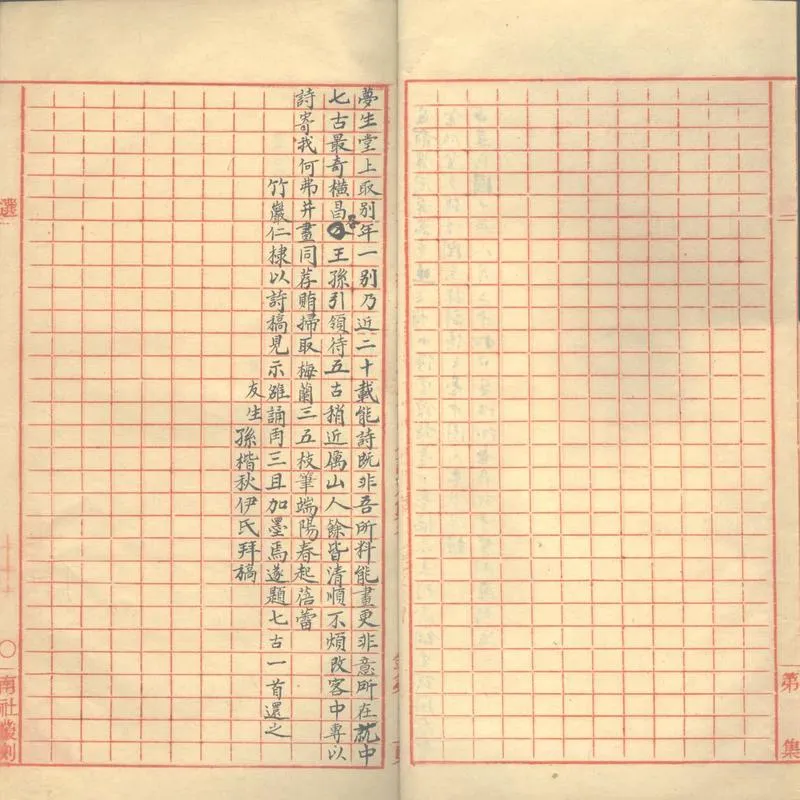 夢生堂上取別年一別乃近二十載能詩既非吾所料能畫更非意所在就中
七古最奇橫昌谷王孫引領待五古稍近厲山人餘皆清順不煩改客中專以
詩寄我何弗并畫同荐賄掃取梅蘭三五枝筆端陽春起蓓蕾
竹巖仁棣以詩稿見示雒誦再三且加墨焉遂題七古一首還之
友生孫楷秋伊氏拜稿
第
集
選
南社叢刻